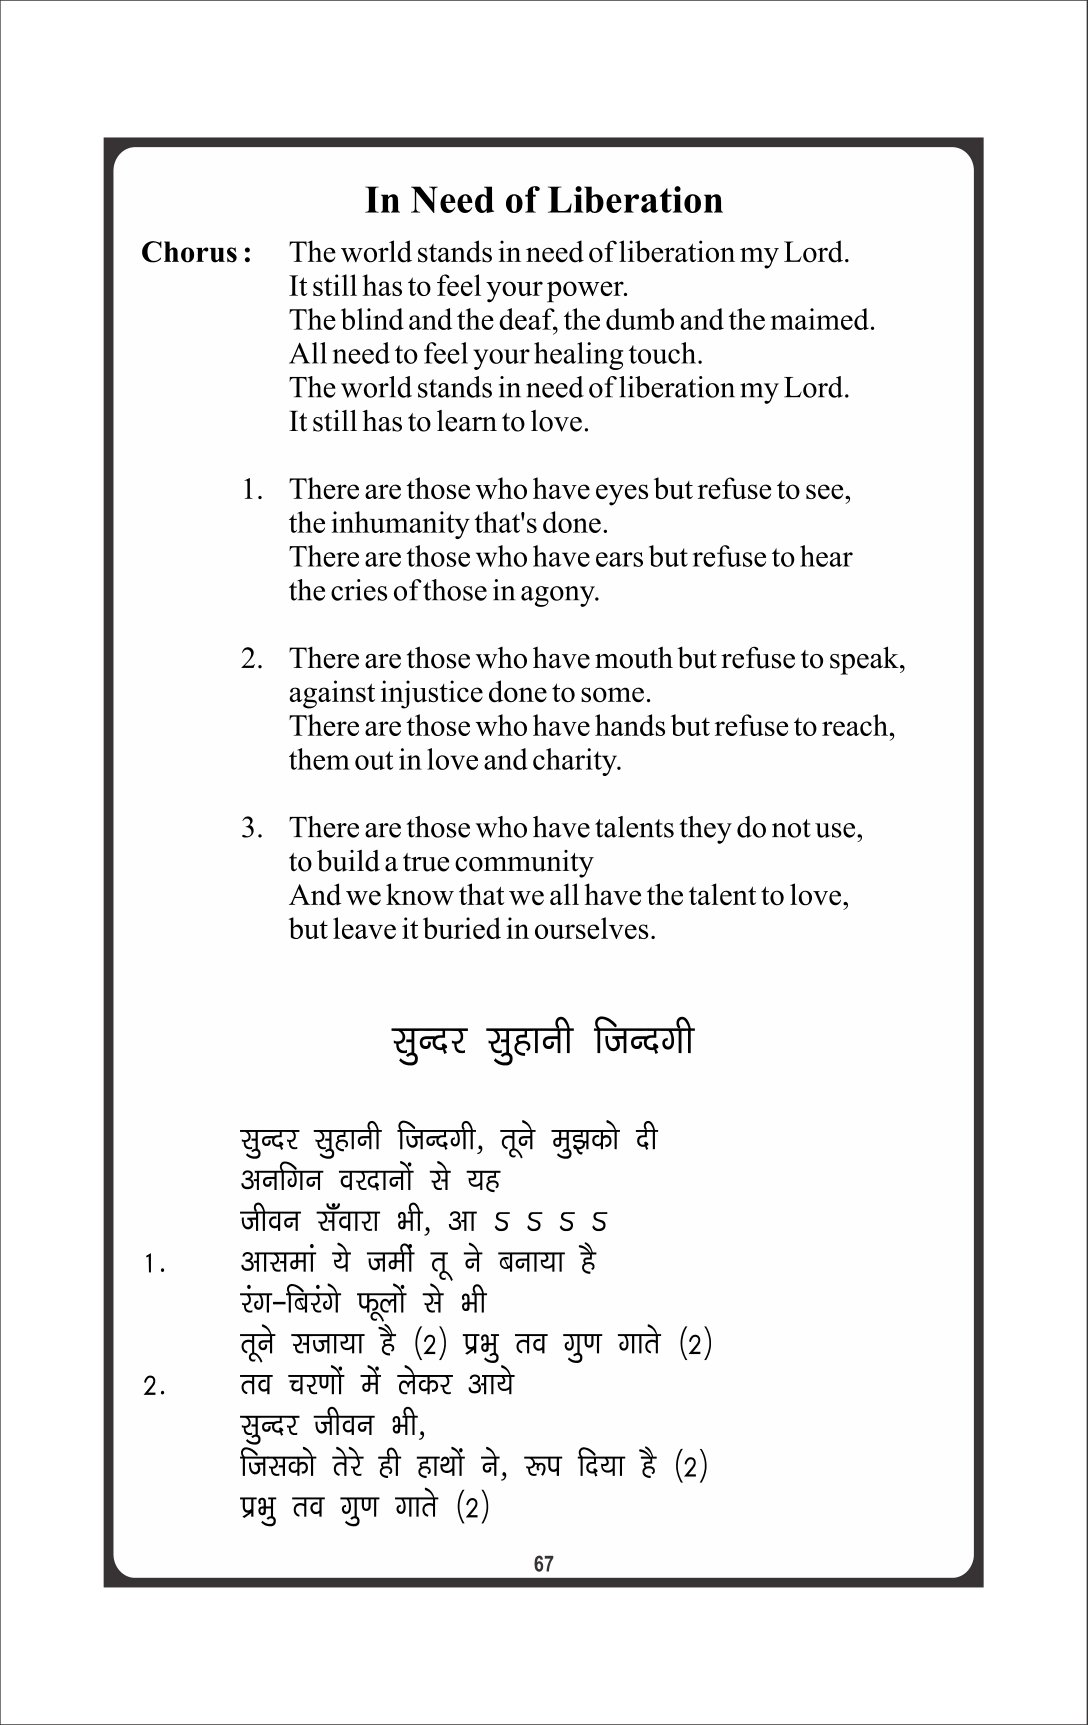 In Need of Liberation
Chorus : The world stands in need of liberation my Lord.
It still has to feel your power.
The blind and the deaf, the dumb and the maimed.
All need to feel your healing touch.
The world stands in need of liberation my Lord.
It still has to learn to love.
1. There are those who have eyes but refuse to see,
the inhumanity that's done.
There are those who have ears but refuse to hear
the cries of those in agony.
2. There are those who have mouth but refuse to speak,
against injustice done to some.
There are those who have hands but refuse to reach,
them out in love and charity.
3. There are those who have talents they do not use,
to build a true community
And we know that we all have the talent to love,
but leave it buried in ourselves.
सुन्दर सुहानी जिन्दगी
सुन्दर सुहानी जिन्दगी, तूने मुझको दी
अनगिन वरदानों से यह
जीवन सँवारा भी, आ ऽ ऽ ऽ ऽ
1. आसमां ये जमीं तू ने बनाया है
रंग-बिरंगे फूलों से भी
तूने सजाया है (2) प्रभु तव गुण गाते (2)
2. तव चरणों में लेकर आये
सुन्दर जीवन भी,
जिसको तेरे ही हाथों ने, रूप दिया है (2)
प्रभु तव गुण गाते (2)
67